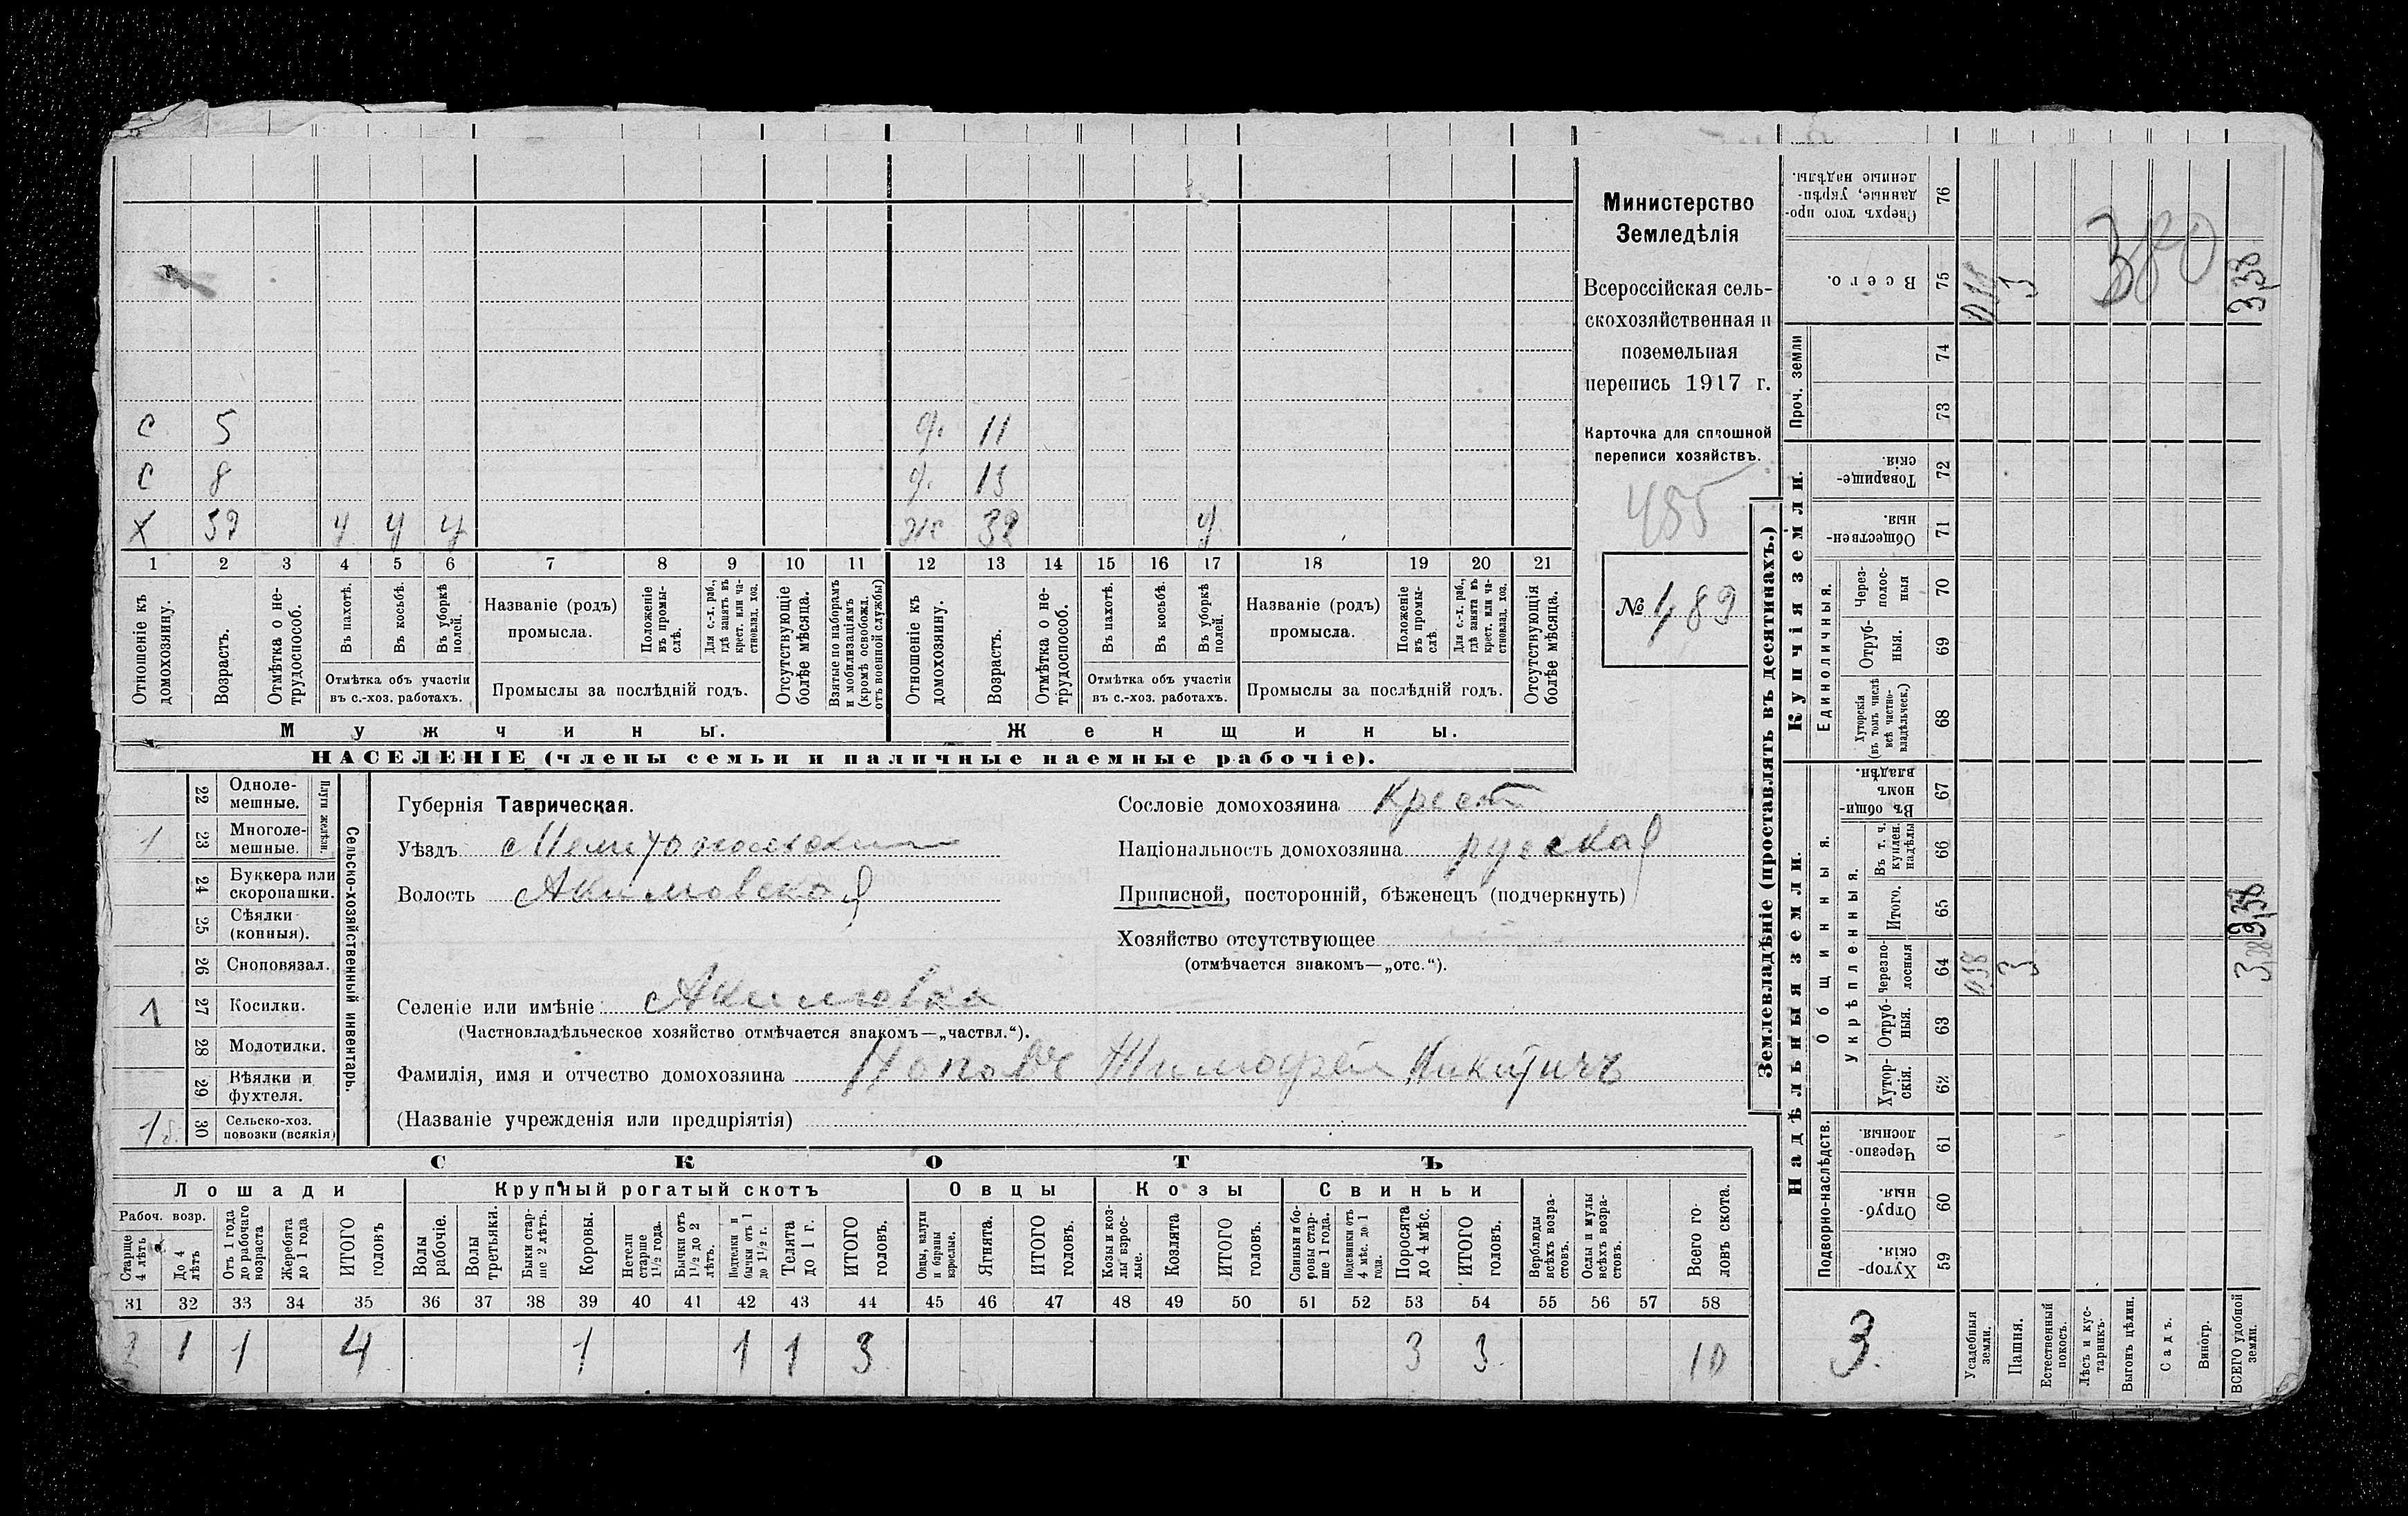 с 5 д. 11
с 8 д. 13
х 39 у у у ж 32 у
1 2 3 4 5 6 7 8 9 10 11 12 13 14 15 16 17 18 19 20 21
Отношеніе къ домохозяину.
Возрастъ.
Отмѣтка о не-трудоспособ.
Въ пахотѣ.
Въ косьбѣ.
Въ уборкѣ полей.
Отмѣтка объ участіи въ с.-хоз. работахъ.
Названіе (родъ) промысла.
Положеніе въ промы-слѣ.
Для с.-х. раб., гдѣ занятъ въ крест. или ча-стновлад. хоз.
Промыслы за послѣдній годъ.
Отсутствующіе болѣе мѣсяца.
Взятые по наборамъ и мобилизаціямъ (кромѣ освобожд. отъ военной службы)
Отношеніе къ домохозяину.
Возрастъ.
Отмѣтка о не-трудоспособ.
Въ пахотѣ.
Въ косьбѣ.
Въ уборкѣ полей.
Отмѣтка объ участіи въ с.-хоз. работахъ.
Названіе (родъ) промысла.
Положеніе въ промы-слѣ.
Для с.-х. раб., гдѣ занята въ крест. или ча-стновлад. хоз.
Промыслы за послѣдній годъ.
Отсутствующія болѣе мѣсяца.
Мужчины.
Женщины.
НАСЕЛЕНІЕ (члены семьи и наличные наемные рабочіе).
Министерство
Земледѣлія
Всероссійская сель-
скохозяйственная и
поземельная
перепись 1917 г.
Карточка для сплошной
переписи хозяйствъ.
455
№ 489
22 Одноле-мешные.
1 23 Многоле-мешные.
Плуги желѣзн.
24 Буккера или скоропашки.
25 Сѣялки (конныя).
26 Сноповязал.
1 27 Косилки.
28 Молотилки.
29 Вѣялки и фухтеля.
1 б. 30 Сельско-хоз. повозки (всякія)
Сельско-хозяйственный инвентарь.
Губернія Таврическая.
Уѣздъ Мелитопольскій
Волость Акимовская
Селеніе или имѣніе Акимовка
(Частновладѣльческое хозяйство отмѣчается знакомъ—„частвл.“).
Фамилія, имя и отчество домохозяина Поповъ Тимофей Никитичъ
(Названіе учрежденія или предпріятія)
Сословіе домохозяина Крест
Національность домохозяина русская
Приписной, посторонній, бѣженецъ (подчеркнуть)
Хозяйство отсутствующее
(отмѣчается знакомъ—„отс.“).
СКОТЪ
Лошади
Крупный рогатый скотъ
Овцы
Козы
Свиньи
Рабоч. возр.
Старше 4 лѣтъ
До 4 лѣтъ
Отъ 1 года до рабочаго возраста
Жеребята до 1 года
ИТОГО головъ
Волы рабочіе.
Волы третьяки.
Быки стар-ше 2 лѣтъ.
Коровы.
Нетели старше 1½ года.
Бычки отъ 1½ до 2 лѣтъ.
Подтелки и бычки отъ 1 до 1½ г.
Телята до 1 г.
ИТОГО головъ.
Овцы, валухи и бараны взрослые.
Ягнята.
ИТОГО головъ.
Козы и коз-лы взрос-лые.
Козлята
ИТОГО головъ.
Свиньи и бо-ровы стар-ше 1 года.
Подсвинки отъ 4 мѣс. до 1 года.
Поросята до 4 мѣс.
ИТОГО головъ.
Верблюды всѣхъ возра-стовъ.
Ослы и мулы всѣхъ возра-стовъ.
Всего го-ловъ скота.
31 32 33 34 35 36 37 38 39 40 41 42 43 44 45 46 47 48 49 50 51 52 53 54 55 56 57 58
2 1 1 4 1 1 1 3 3 3 10
Землевладѣніе (проставлять въ десятинахъ.)
Купчія земли.
Надѣльныя земли.
Сверхъ того про-данные, укрѣп-ленные надѣлы. 76
Всего. 75 3 3,38
380
Проч. земли 74 73
Товарище-скія. 72
Обществен-ныя. 71
Единоличныя.
Через-полос-ныя 70
Отруб-ныя. 69
Хуторскія (въ томъ числѣ всѣ частно-владѣльческ.) 68
Общинныя.
Въ общи-номъ владѣн. 67
Укрѣпленныя.
Въ т. ч. куплен. надѣлы 66
Итого. 65 3,38
Черезпо-лосныя 64 0,38 3 3,38
Отруб-ныя. 63
Хутор-скія. 62
Подворно-наслѣдств.
Черезпо-лосныя. 61
Отруб-ныя. 60
Хутор-скія. 59
3.
Усадебныя земли.
Пашня.
Естественный покосъ.
Лѣсъ и кус-тарникъ.
Выгонъ цѣлин.
Садъ.
Виногр.
ВСЕГО удобной земли.